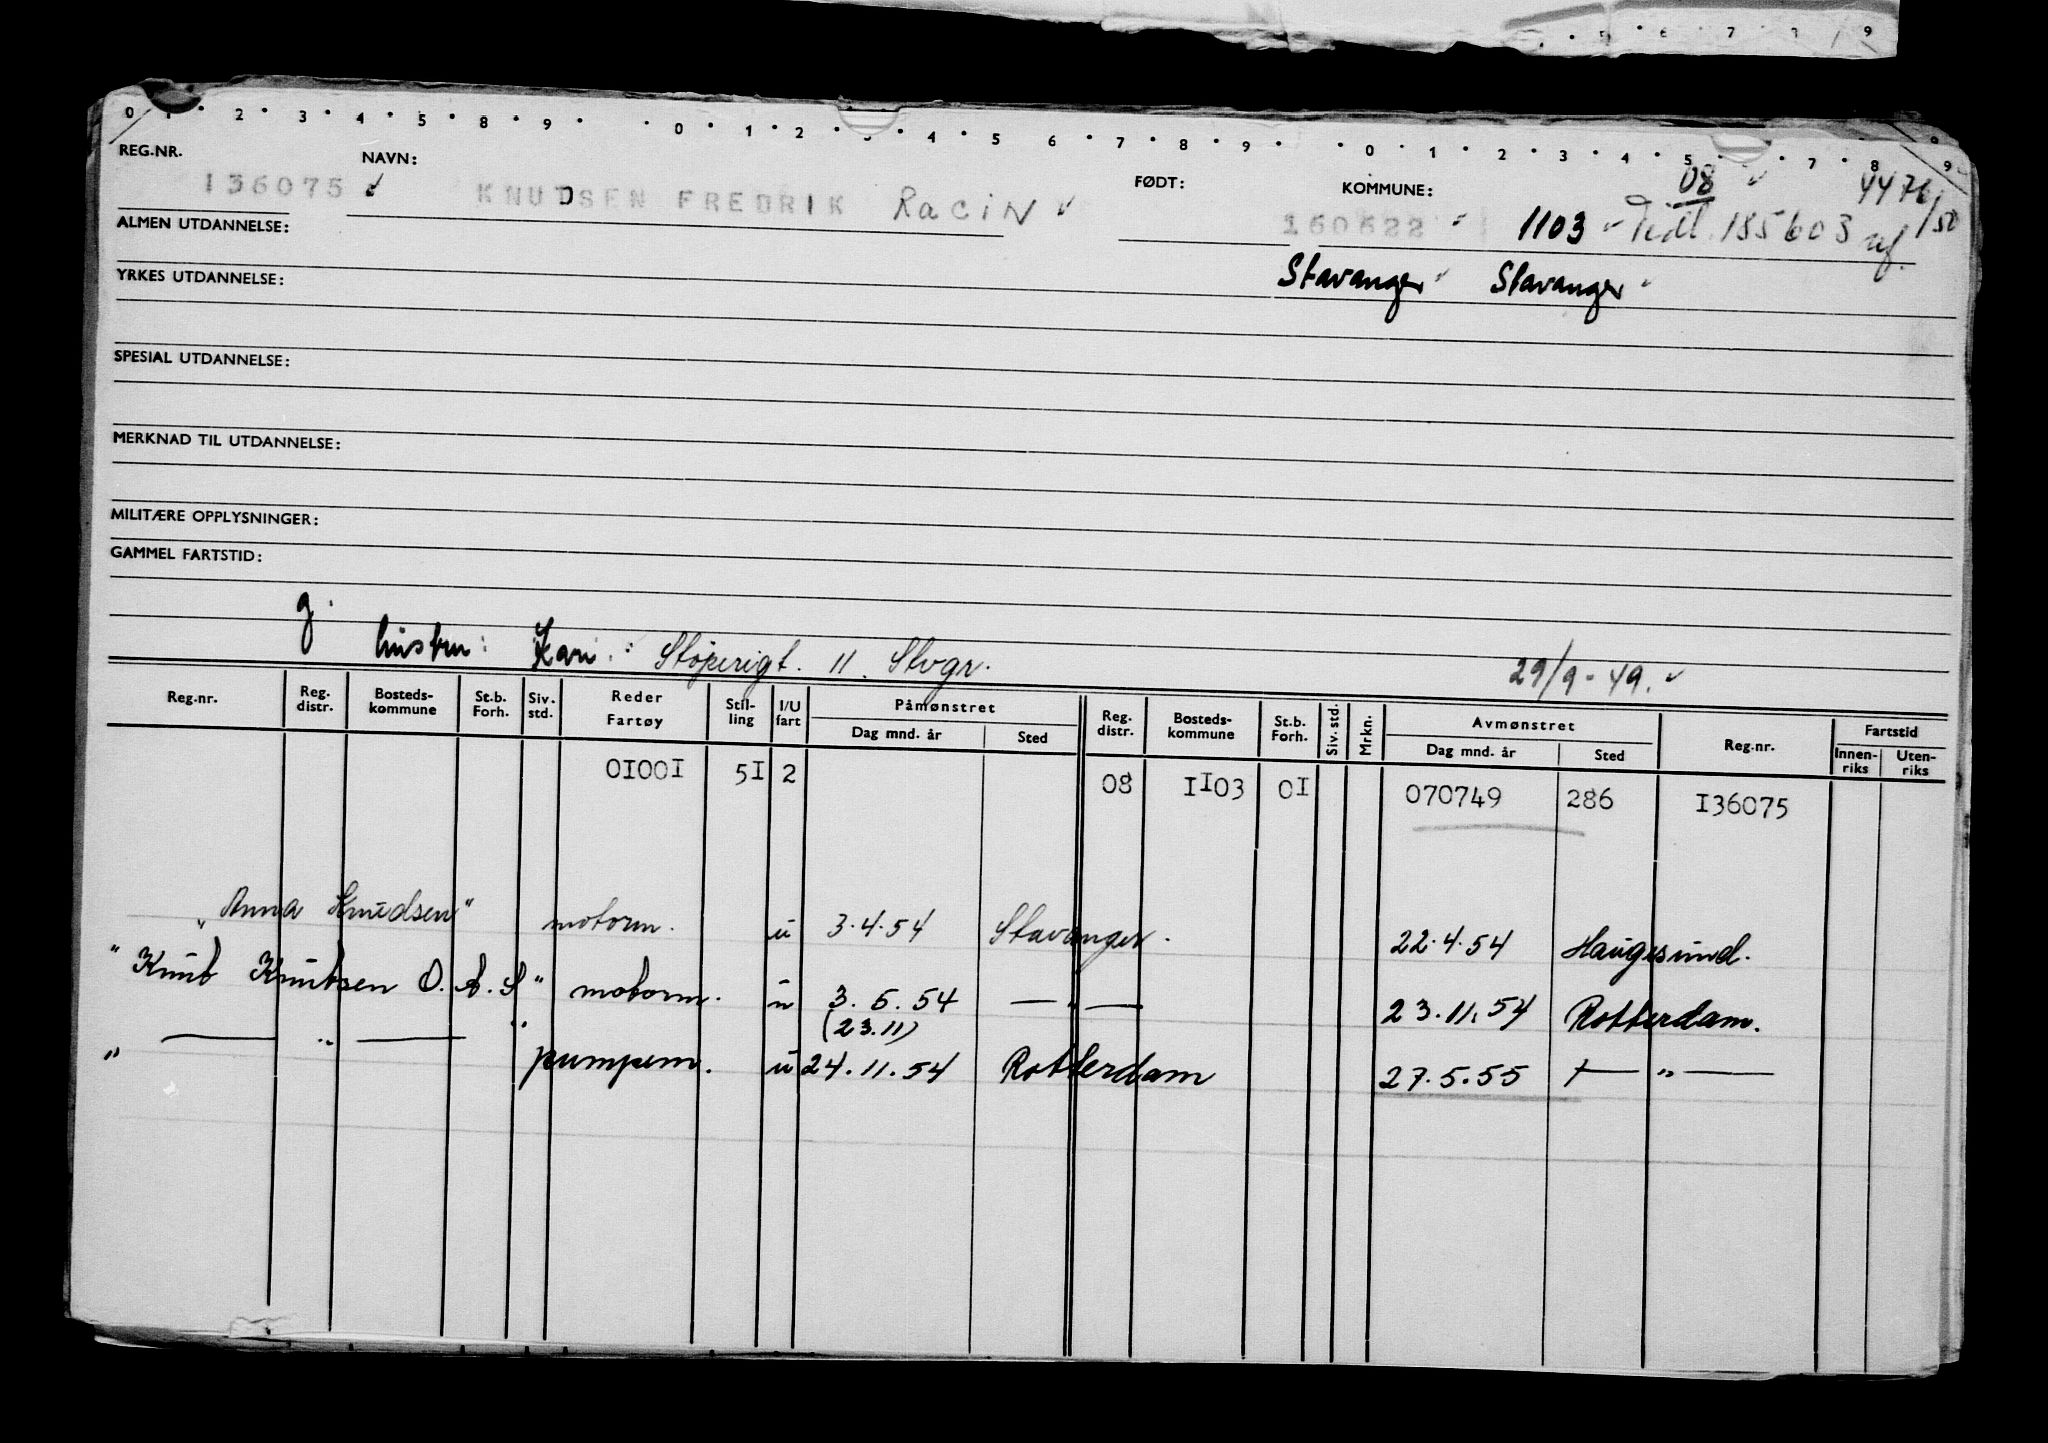 5 · 6 · 7 · 8 · 9
0 1 · 2 · 3 · 4 · 5 · 8 · 9 · · 0 · 1 · 2 · 3 · 4 · 5 6 · 7 · 8 · 9 · · 0 · 1 · 2 · 3 · 4 · 5 · 7 · 8 · 9
REG.NR. NAVN: FØDT: KOMMUNE: 08 4476/50
136075 KNUDSEN FREDRIK RaciN 160622 1103 Tidl. 185603
ALMEN UTDANNELSE:
YRKES UTDANNELSE: Stavanger Stavanger
SPESIAL UTDANNELSE:
MERKNAD TIL UTDANNELSE:
MILITÆRE OPPLYSNINGER:
GAMMEL FARTSTID:
g.
hustru: Kari: 11. Stvgr. 29/9-49.
Reg.nr. Reg. distr. Bosteds-kommune St.b. Forh. Siv. std. Reder Fartøy Stil-ling I/U fart Påmønstret Dag mnd. år Sted Reg. distr. Bosteds-kommune St.b. Forh. Siv. std. Mrkn. Avmønstret Dag mnd. år Sted Reg.nr. Fartstid Innen-riks Uten-riks
01001 51 2 08 1103 01 070749 286 136075
"Anna Knudsen" motorm. u 3.4.54 Stavanger. 22.4.54 Haugesund.
"Knut Knutsen O.A.S" motorm. u 3.6.54 — " — 23.11.54 Rotterdam.
(23.11)
" — " — " pumpem. u 24.11.54 Rotterdam 27.5.55 — " —